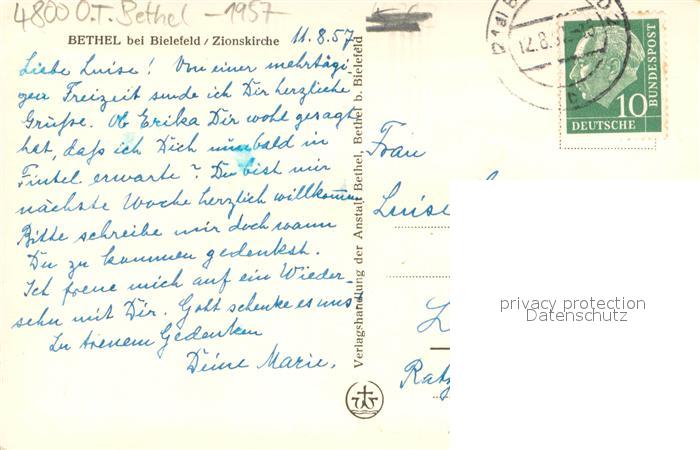 4800 O.T. Bethel - 1957
BETHEL bei Bielefeld / Zionskirche
11.8.57
Liebe Luise! Von einer mehrtägi-
gen Freizeit sende ich Dir herzliche
Grüße. Ob Erika Dir wohl gesagt
hat, daß ich Dich nun bald in
Fintel erwarte? Du bist mir
nächste Woche herzlich willkommen
Bitte schreibe mir doch wann
Du zu kommen gedenkst.
Ich freue mich auf ein Wieder-
sehn mit Dir. Gott schenke es uns
In treuem Gedenken
Deine Marie.
Verlagshandlung der Anstalt Bethel, Bethel b. Bielefeld
10
DEUTSCHE
BUNDESPOST
Frau
Luise
L
Ratz
privacy protection
Datenschutz